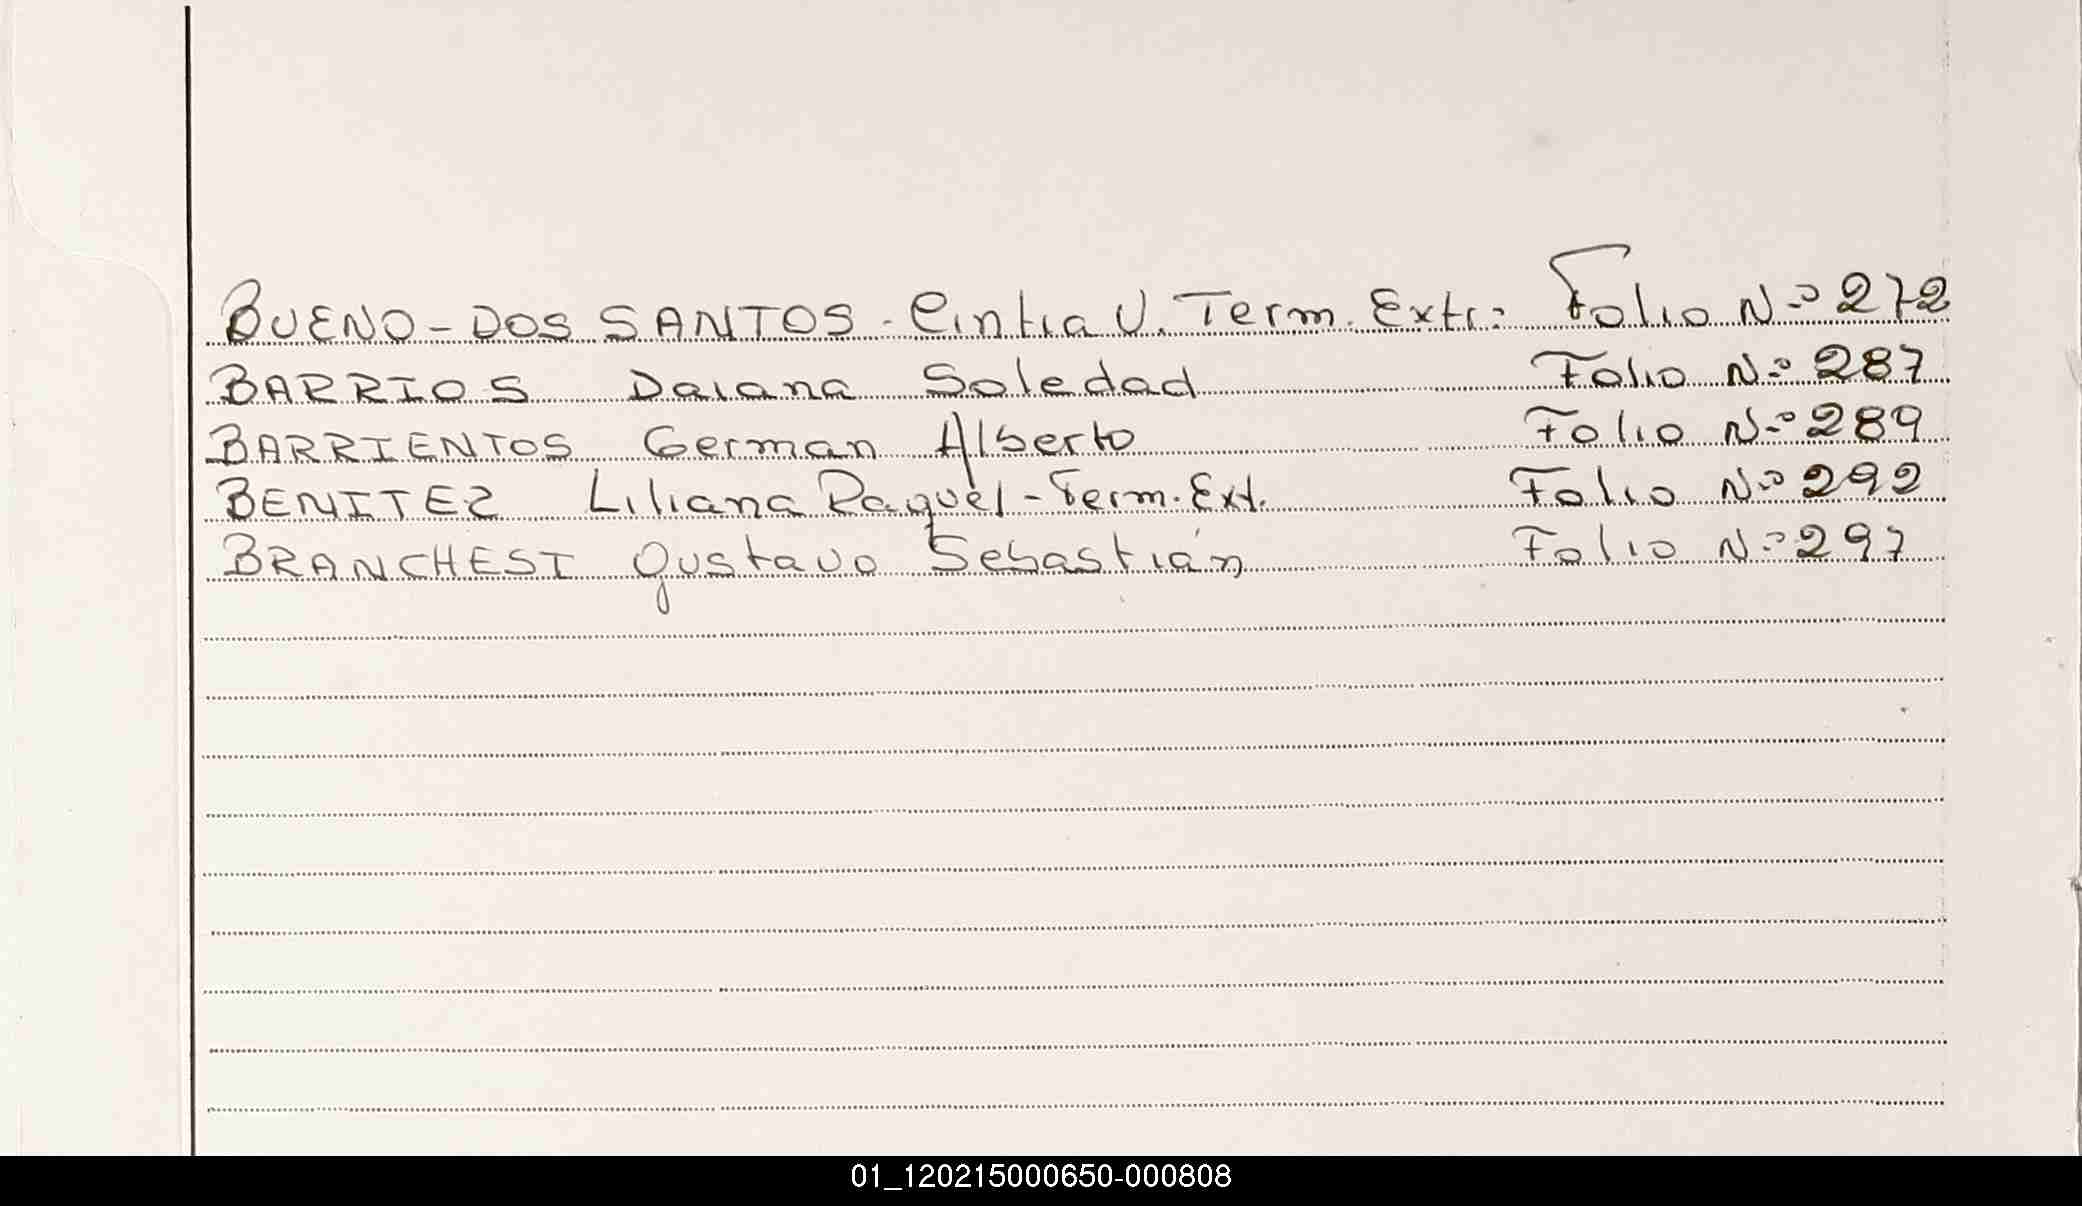 BUENO-DOS SANTOS - Cintia V. Term. Extr: Folio N.º 272
BARRIOS Daiana Soledad Folio N.º 287
BARRIENTOS German Alberto Folio N.º 289
BENITEZ Liliana Raquel - Term. Ext. Folio N.º 292
BRANCHESI Gustavo Sebastián Folio N.º 297
01_120215000650-000808